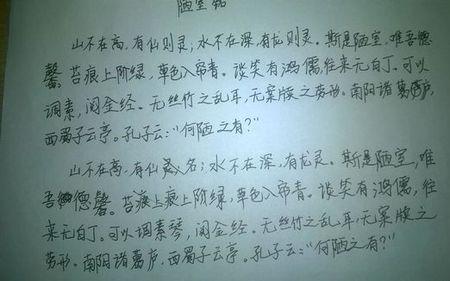 陋室铭
山不在高,有仙则灵;水不在深,有龙则灵。斯是陋室,唯吾德
馨。苔痕上阶绿,草色入帘青。谈笑有鸿儒,往来无白丁。可以
调素,阅金经。无丝竹之乱耳,无案牍之劳形。南阳诸葛庐,
西蜀子云亭。孔子云:“何陋之有?”
山不在高,有仙则名;水不在深,有龙灵。斯是陋室,唯
吾德馨。苔痕上痕上阶绿,草色入帘青。谈笑有鸿儒,往
来无白丁。可以调素琴,阅金经。无丝竹之乱耳,无案牍之
劳形。南阳诸葛庐,西蜀子云亭。孔子云:“何陋之有?”